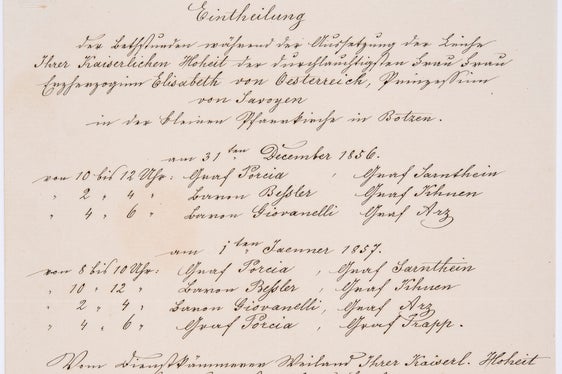 Eintheilung
der Bethstunden während der Aussetzung der Leiche
Ihrer Kaiserlichen Hoheit der durchlauchtigsten Frau Frau
Erzherzoginn Elisabeth von Oesterreich, Prinzessinn
von Savoyen
in der kleinen Pfarrkirche in Botzen.
am 31ten December 1856.
von 10 bis 12 Uhr: Graf Porcia , Graf Sarnthein
" 2 " 4 " Baron Beßler Graf Khuen
" 4 " 6 " Baron Giovanelli Graf Arz
am 1ten Jaenner 1857.
von 8 bis 10 Uhr: Graf Porcia , Graf Sarnthein
" 10 " 12 " Baron Beßler , Graf Khuen
" 2 " 4 " Baron Giovanelli, Graf Arz
" 4 " 6 " Graf Porcia , Graf Trapp.
Vom Dienstkämmerer Weiland Ihrer Kaiserl. Hoheit